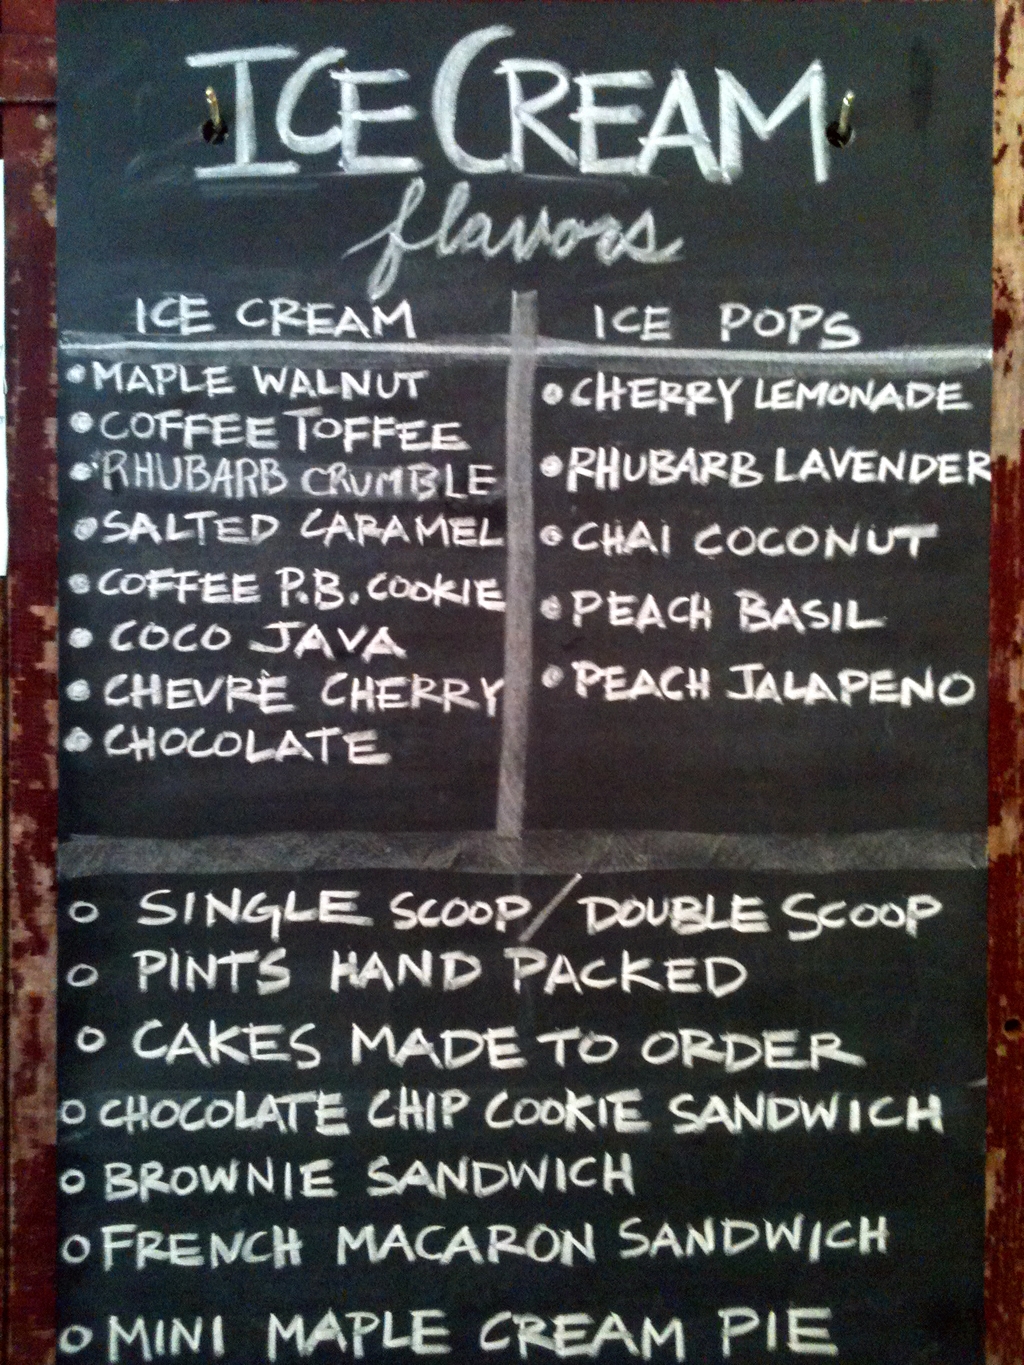 ICE CREAM
flavors
ICE CREAM
MAPLE WALNUT
COFFEE TOFFEE
RHUBARB CRUMBLE
SALTED CARAMEL
COFFEE P.B. COOKIE
COCO JAVA
CHEVRÈ CHERRY
CHOCOLATE
ICE POPS
CHERRY LEMONADE
RHUBARB LAVENDER
CHAI COCONUT
PEACH BASIL
PEACH JALAPENO
SINGLE SCOOP/DOUBLE SCOOP
PINTS HAND PACKED
CAKES MADE TO ORDER
CHOCOLATE CHIP COOKIE SANDWICH
BROWNIE SANDWICH
FRENCH MACARON SANDWICH
MINI MAPLE CREAM PIE